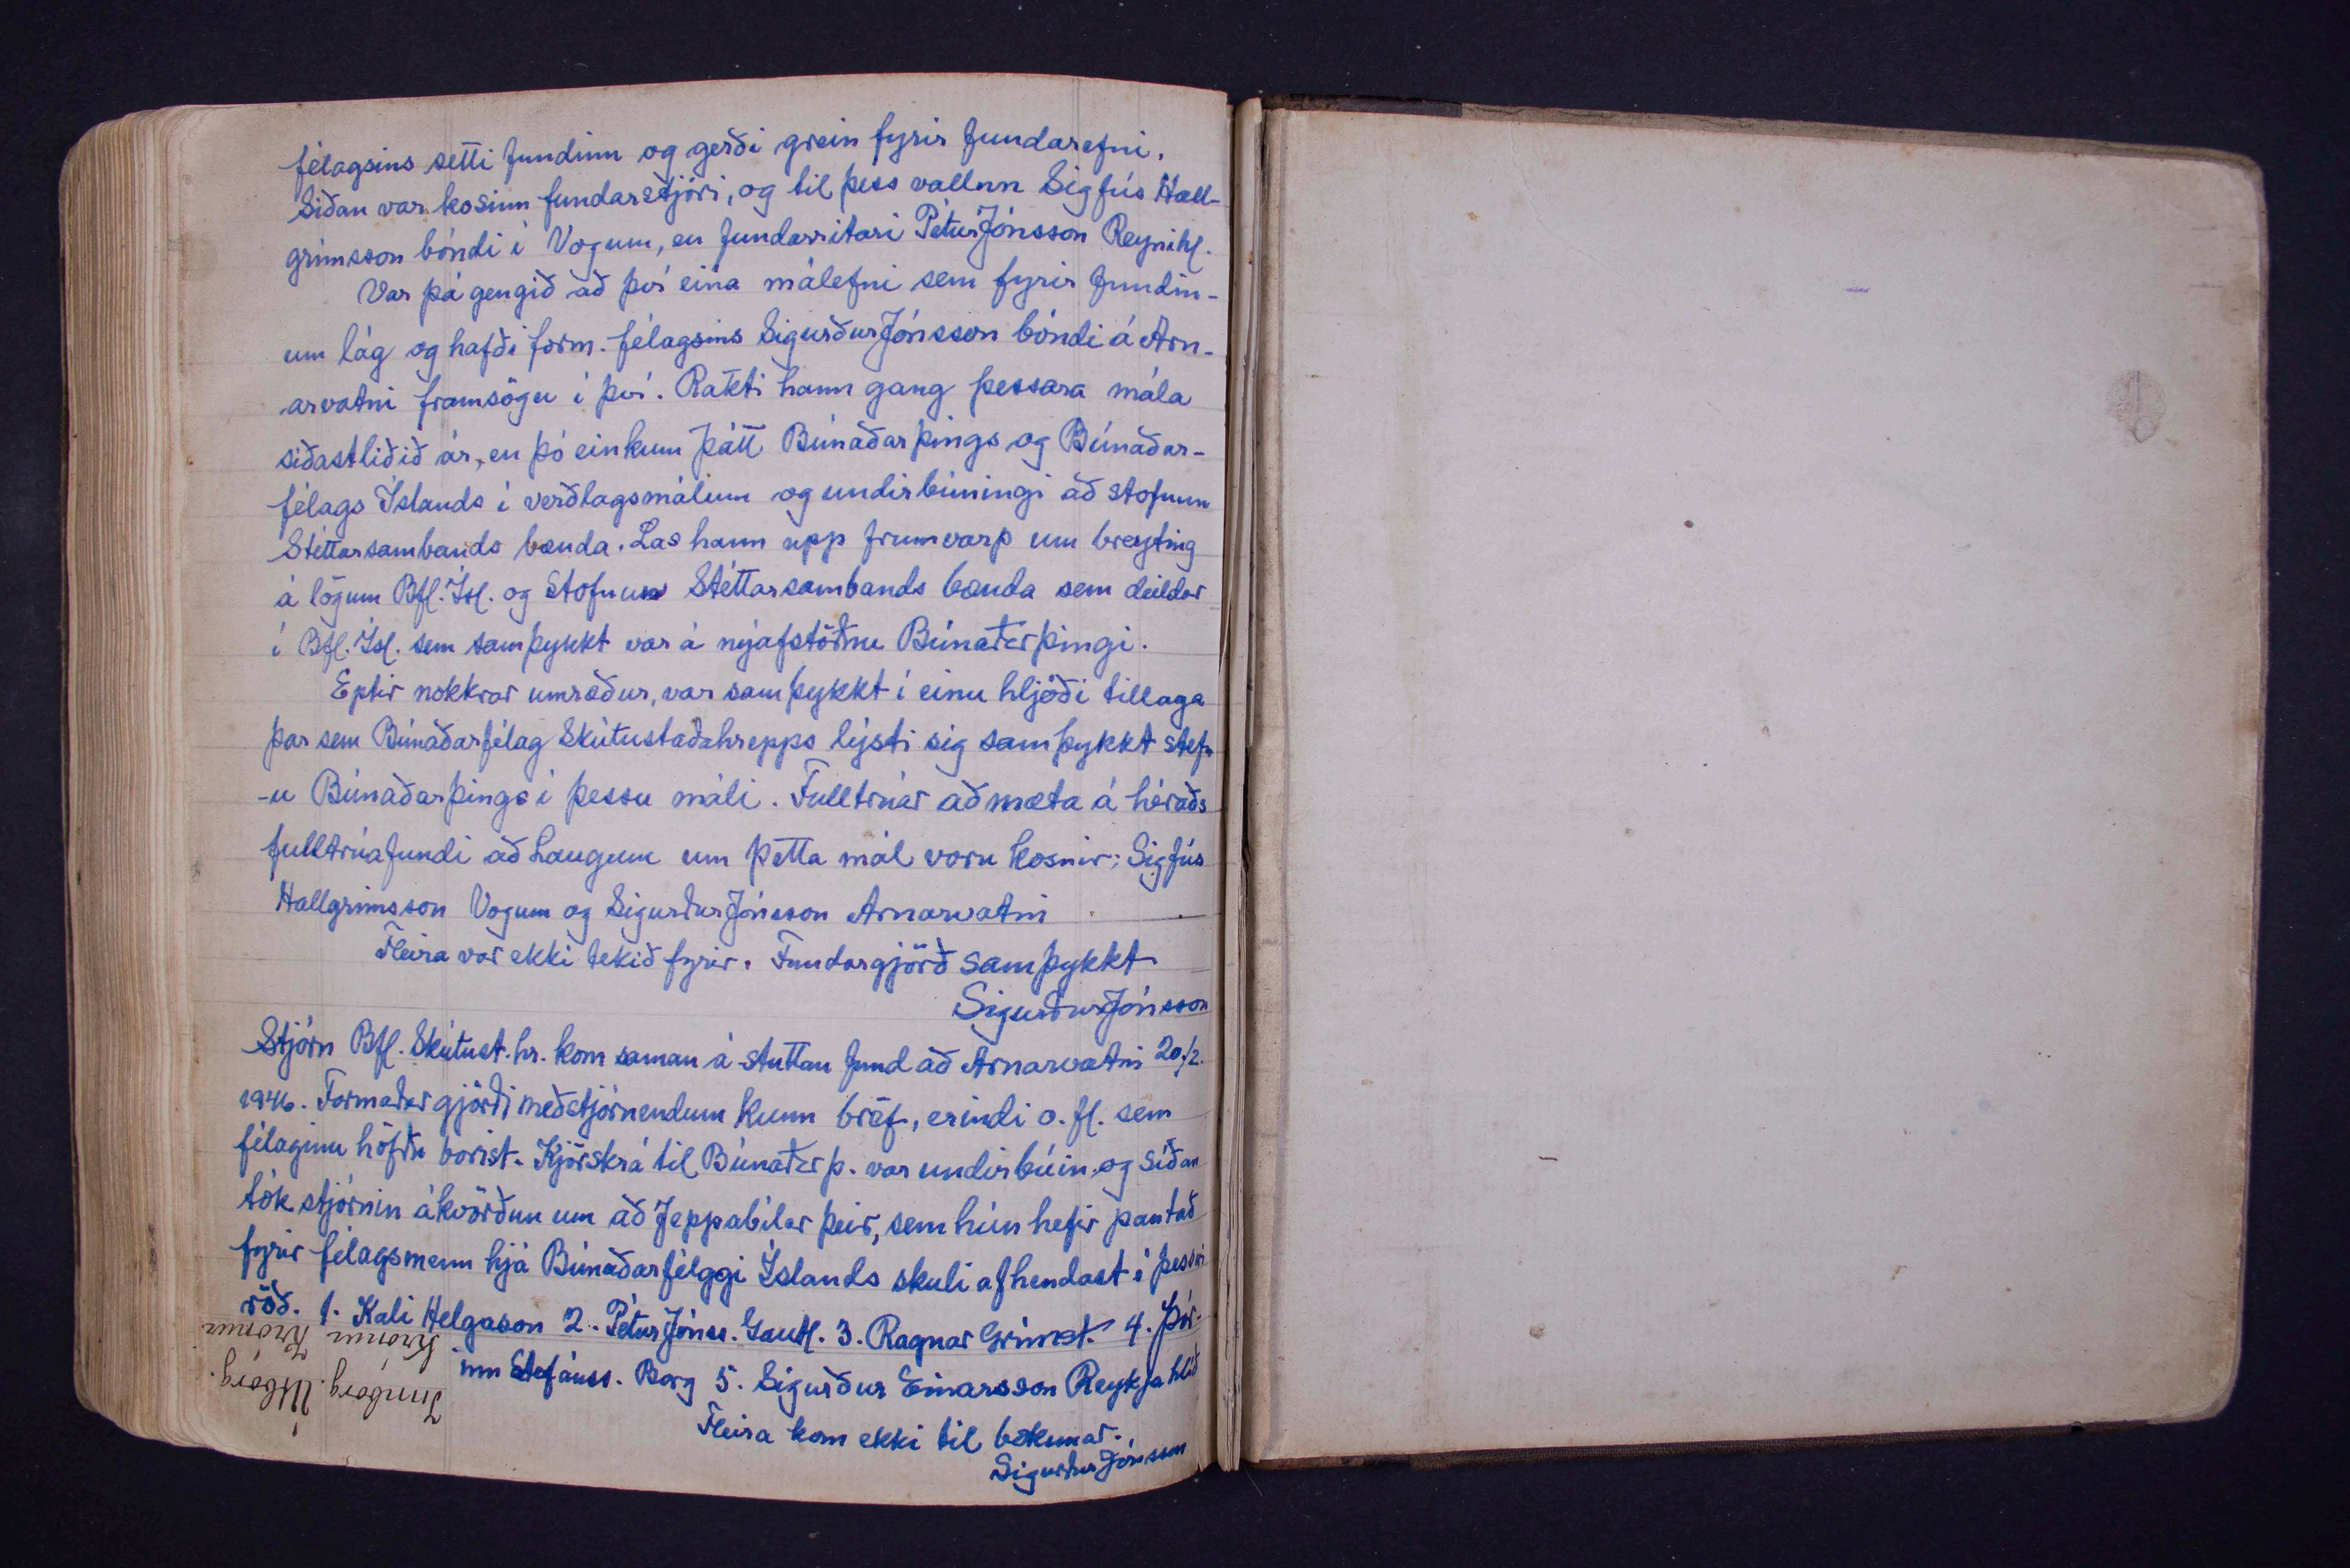 félagsins setti fundinn og gerði grein fyrir fundarefni.
Síðan var kosinn fundarstjóri, og til þess vallnn Sigfús Hall-
grímsson bóndi í Vogum, en fundarritari Pétur Jónsson Reynihl.
Var þá gengið að því eina málefni sem fyrir fundin-
um lág og hafði form. félagsins Sigurður Jónsson bóndi á Arn-
arvatni framsögu í því. Rakti hann gang þessara mála
síðastliðið ár, en þó einkum þátt Búnaðarþings og Búnaðar-
félags Íslands í verðlagsmálum og undirbúningi að stofnun
Stéttarsambands bænda. Las hann upp frumvarp um breyting
á lögum Bfl. Ísl. og stofnun Stéttarsambands bænda sem deildar
í Bfl. Ísl. sem samþykkt var á nýafstöðnu Búnaðarþingi.
Eptir nokkrar umræður, var samþykkt í einu hljóði tillaga
þar sem Búnaðarfélag Skútustaðahrepps lýsti sig samþykkt stefn
-u Búnaðarþings í þessu máli. Fulltrúar að mæta á héraðs
fulltrúafundi að Laugum um þetta mál voru kosnir: Sigfús
Hallgrímsson Vogum og Sigurður Jónsson Arnarvatni
Fleira var ekki tekið fyrir. Fundargjörð samþykkt
Sigurður Jónsson
Stjórn Bfl. Skútust.hr. kom saman á stuttan fund að Arnarvatni 20/2.
1946. Formaður gjörði meðstjórnendum kunn bréf, erindi o.fl. sem
félaginu höfðu borist. Kjörskrá til Búnaðarþ. var undirbúin og síðan
tók stjórnin ákvörðun um að Jeppabílar þeir, sem hún hefir pantað
fyrir félagsmenn hjá Búnaðarfélggi Íslands skuli afhendast í þessri
röð. 1. Kali Helgason 2. Pétur Jónss. Gautl. 3. Ragnar Grímst. 4. Þór-
inn Stefánss. Borg 5. Sigurður Einarsson Reykjahlíð
Fleira kom ekki til bókunar.
Sigurður Jónsson
Innborg. Útborg.
Krónur Krónur